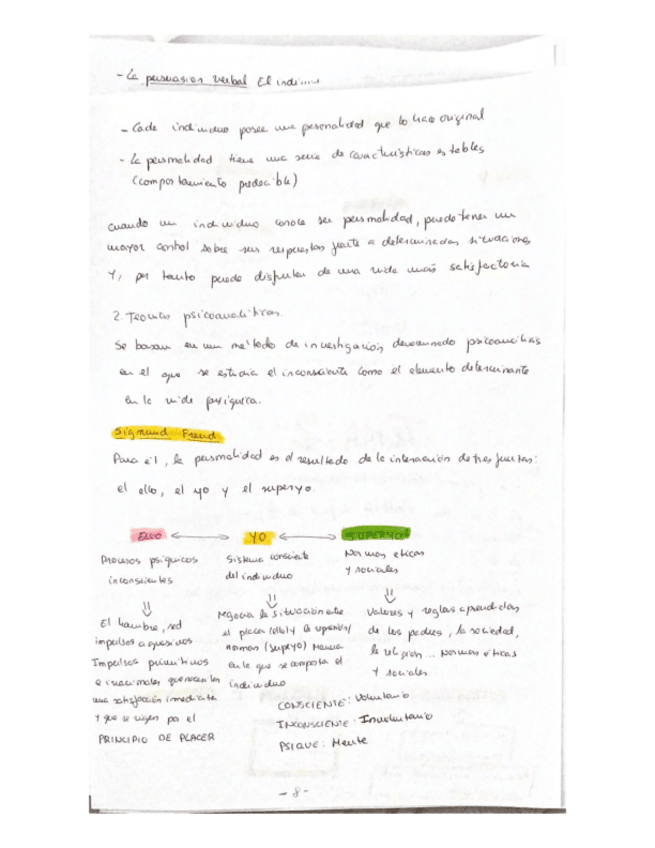 - La persuasion verbal El indi.....
- Cada individuo posee una personalidad que lo hace original
- La personalidad tiene una serie de características estables
(comportamiento predecible)
cuando un individuo conoce su personalidad, puede tener un
mayor control sobre sus respuestas frente a determinadas situaciones
Y, por tanto puede disfrutar de una vida más satisfactoria
2. Teorías psicoanalíticas.
Se basan en un método de investigación denominado psicoanálisis
en el que se estudia el inconsciente como el elemento determinante
en la vida psíquica.
Sigmund Freud
Para él, la personalidad es el resultado de la interacción de tres fuerzas:
el ello, el yo y el superyo.
ELLO ⟷ YO ⟷ SUPERYO
Procesos psíquicos
inconscientes
Sistema consciente
del individuo
Normas éticas
y sociales
El hambre, sed
impulsos agresivos
Impulsos primitivos
e irracionales que necesitan
una satisfacción inmediata
Y que se rigen por el
PRINCIPIO DE PLACER
Negocia la situación entre
el placer (ello) y la
normas (superyo) Manera
en la que se comporta el
individuo
Valores y reglas aprendidas
de los padres, la sociedad,
la religión... Normas éticas
Y sociales.
CONSCIENTE: Voluntario
INCONSCIENTE: Involuntario
PSIQUE: Mente
- 8 -